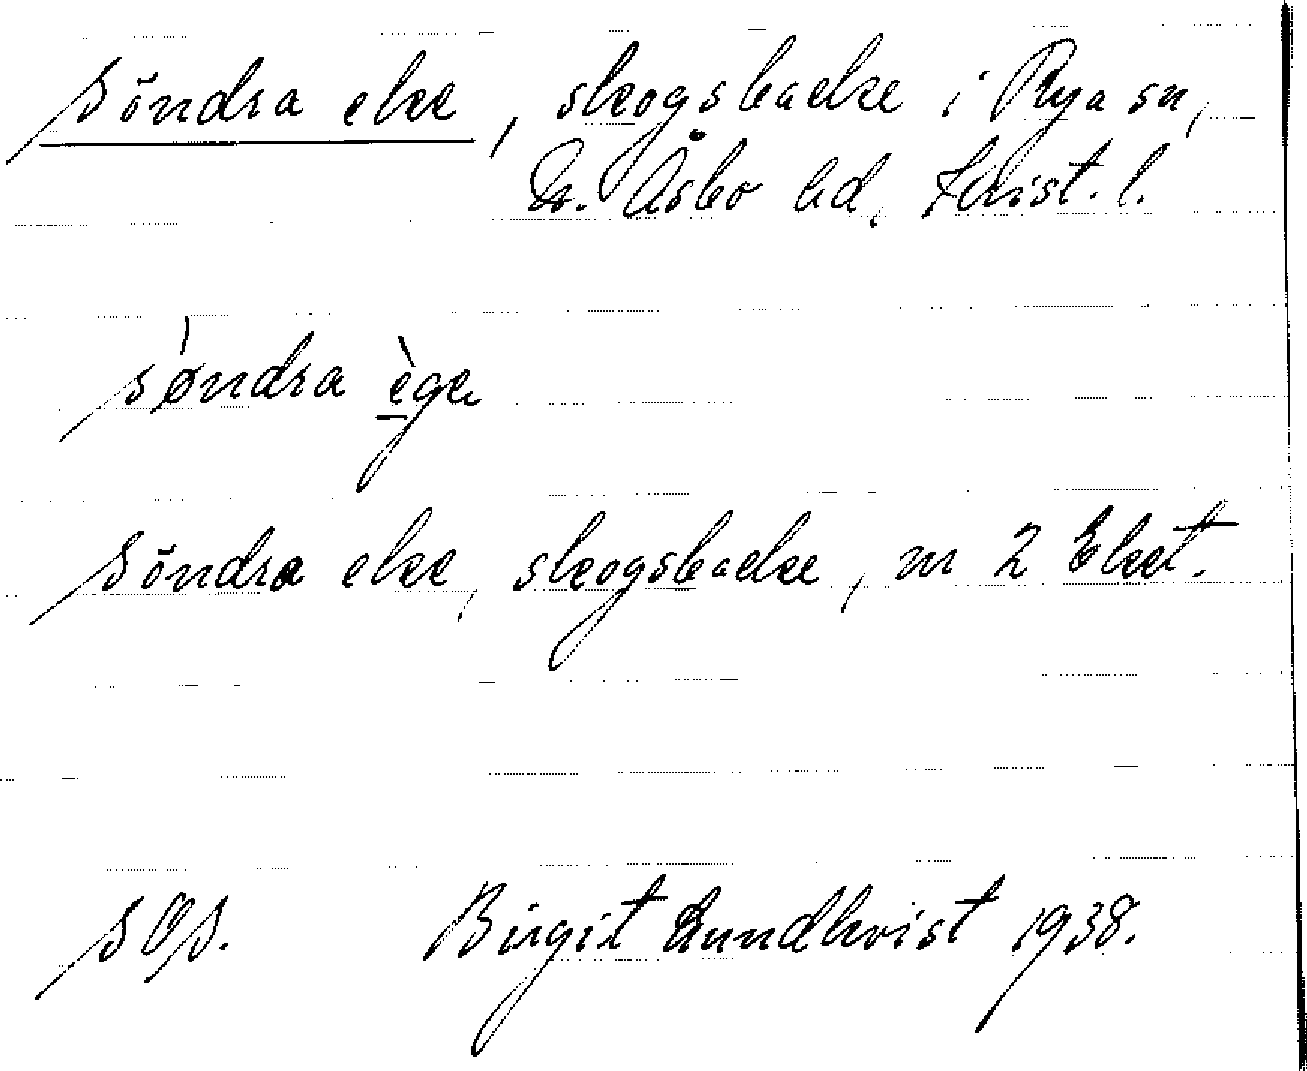 Söndra eke, skogsbacke i Rya sn,
N. Åsbo hd, Krist. l.
söndra ège
Söndra eke, skogsbacke, m 2 Eket.
SOS. Birgit Lundkvist 1938.